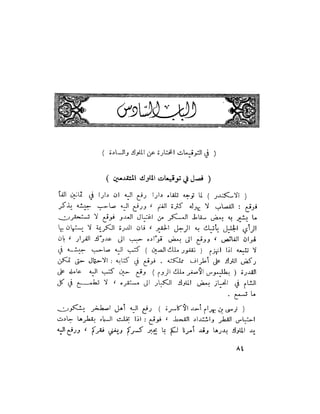 الباب السادس
( في التوقيعات المختارة عن الملوك والسادة )
( فصل في توقيعات الملوك المتقدمين )
( الاسكندر ) لما توجه تلقاء دارا رفع اليه ان دارا في ثمانين الفاً
فوقع : القصاب لا يهوله كثرة الغنم ، ورفع اليه صاحب جيشه يذكر
ما يشير به بعض سقاط العسكر من اغتيال العدو فوقع لا تستحقرن
الرأي الجليل يأتيك به الرجل الحقير ، فان الدرة الكريمة لا يستهان بها
لهوان الغائص ، ووقع الى بعض قواده حبب الى عدوك الفرار ، بان
لا تتبعه اذا انهزم ( ملك الصين ) كتب اليه صاحب جيشه في
ركض الترك على أطراف مملكته . فوقع في كتابه : الاحتيال حتى تمكن
القدرة ( بطليموس الأصغر ملك الروم ) وقع حين كتب اليه عامله على
الشام في بعض الملوك الكبار الى مستقره ، لا تطمع في كل
ما تسمع .
( نرسي بن بهرام أحد الأكاسرة ) رفع اليه أهل اصطخر يشكون
احتباس القطر واشتداد القحط ، فوقع : اذا بخلت السماء بقطرها جادت
يد الملوك بدرها وقد أمرنا لكم بما يجبر كسركم ويغني فقركم ، ورفع اليه
٨٤